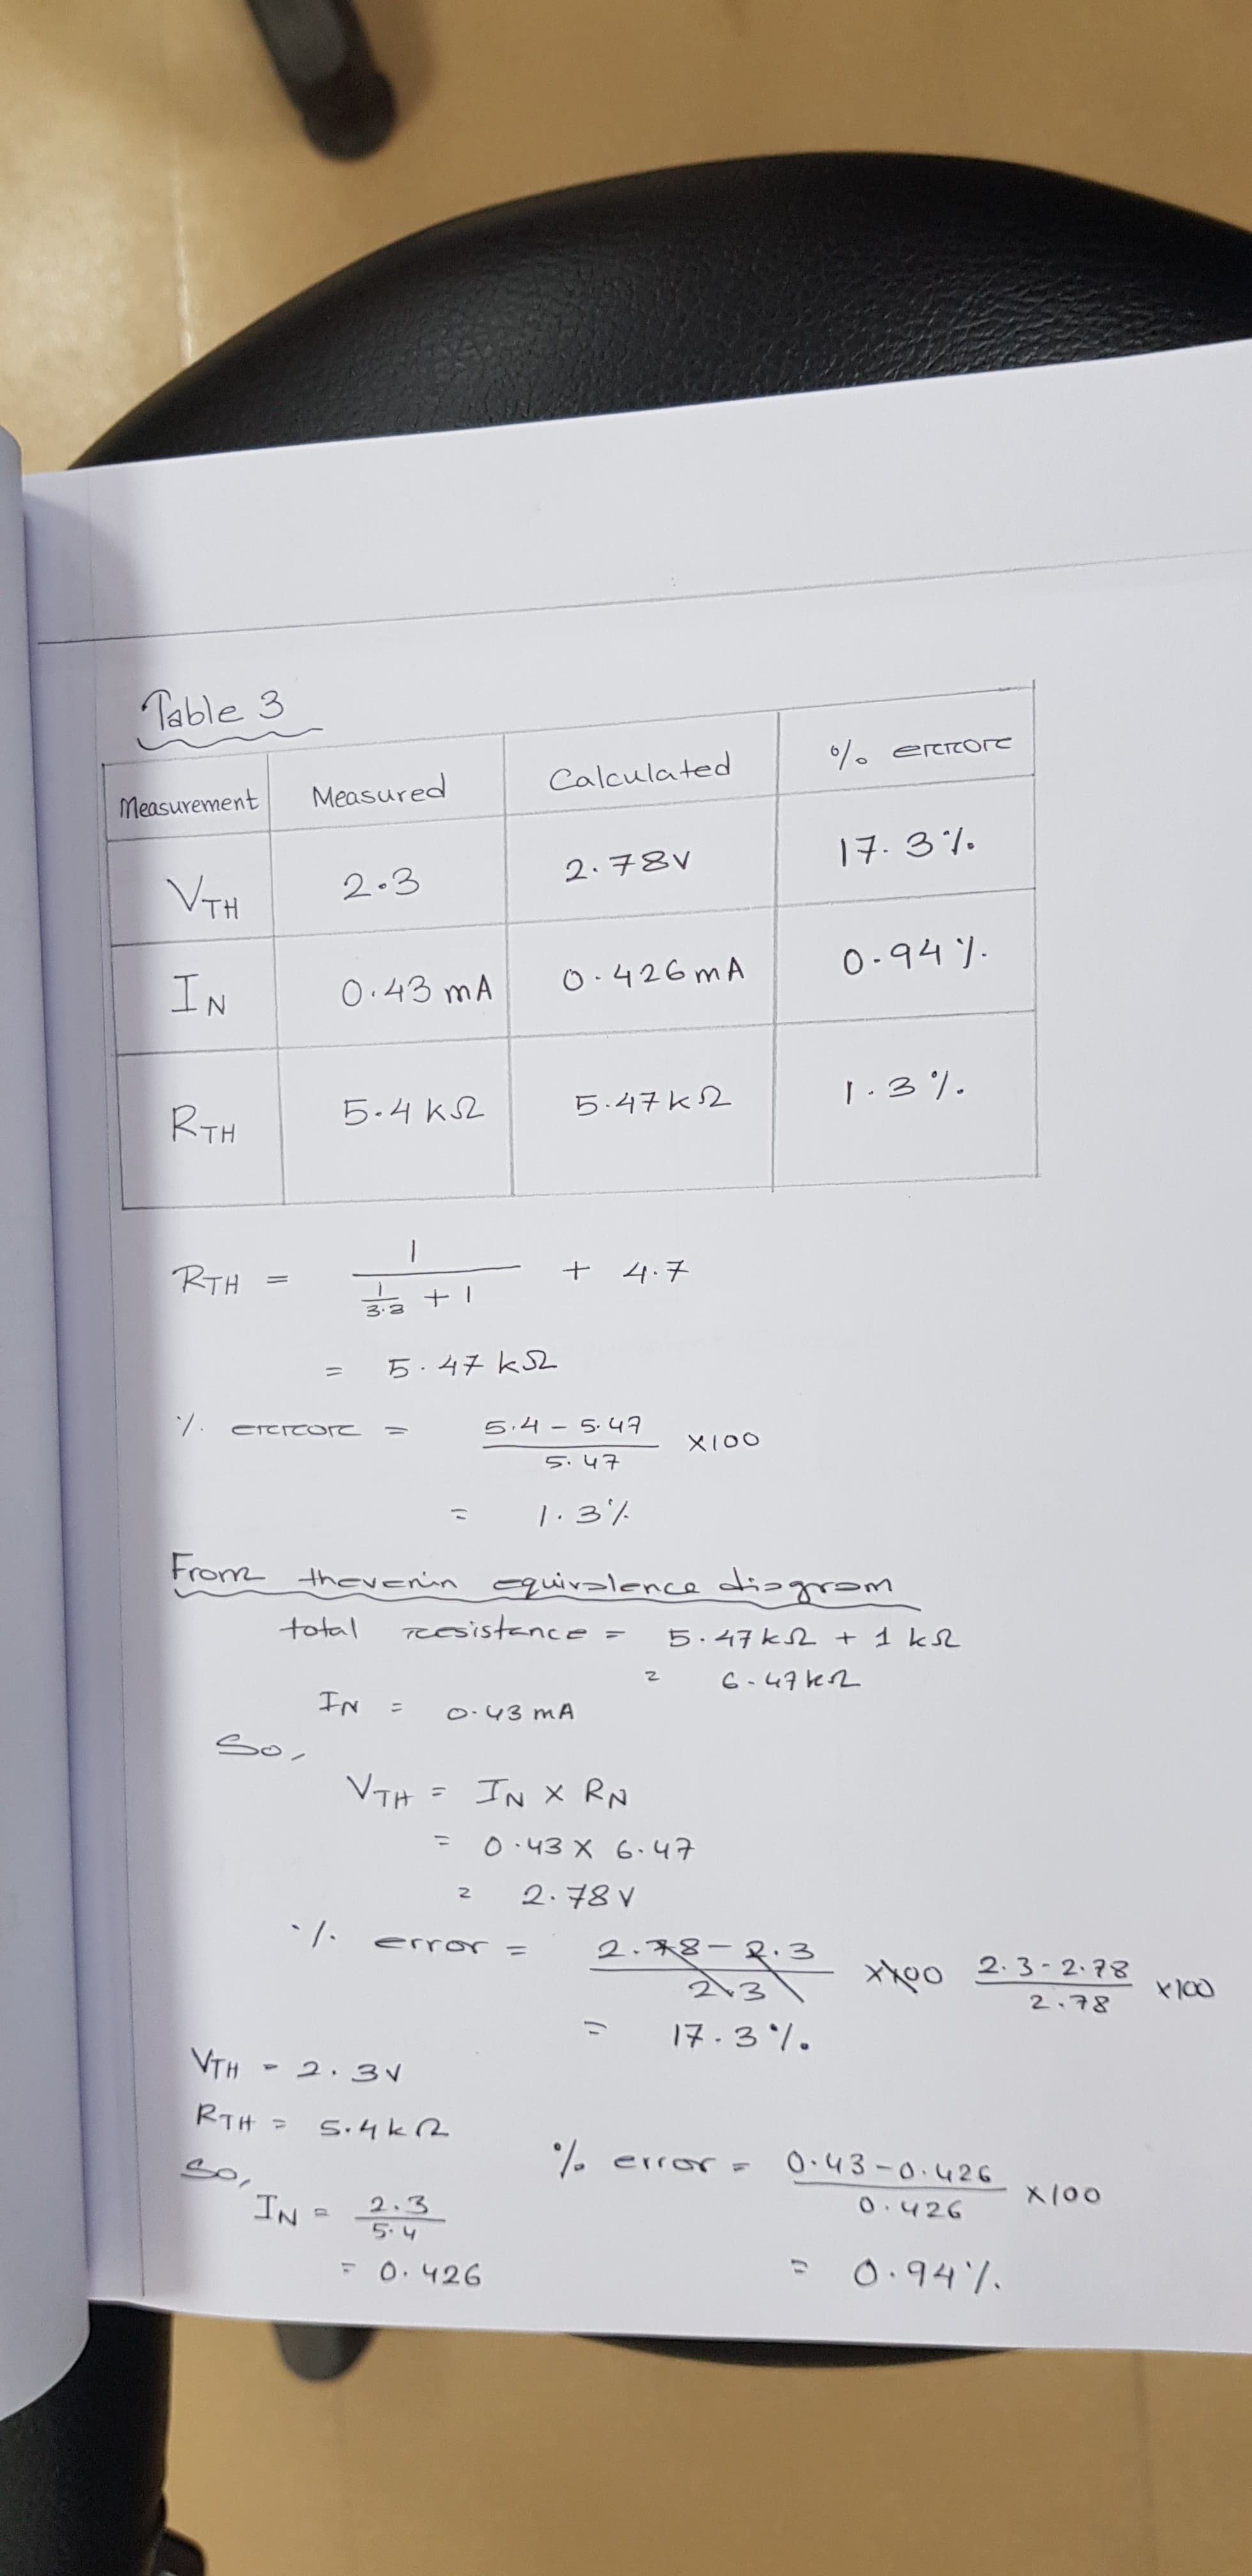 Table 3
Measurement Measured Calculated % error
VTH 2.3 2.78V 17.3%
IN 0.43 mA 0.426 mA 0.94%
RTH 5.4 kΩ 5.47 kΩ 1.3%
RTH = 1 / (1/3.3 + 1) + 4.7
= 5.47 kΩ
% error = (5.4 - 5.47) / 5.47 ×100
= 1.3%
From thevenin equivalence diagram
total resistance = 5.47 kΩ + 1 kΩ
= 6.47 kΩ
IN = 0.43 mA
So,
VTH = IN × RN
= 0.43 × 6.47
= 2.78 V
% error = (2.78 - 2.3) / 2.3 ×100 (2.3 - 2.78) / 2.78 ×100
= 17.3%
VTH = 2.3V
RTH = 5.4 kΩ
So,
IN = 2.3 / 5.4
= 0.426
% error = (0.43 - 0.426) / 0.426 ×100
= 0.94%